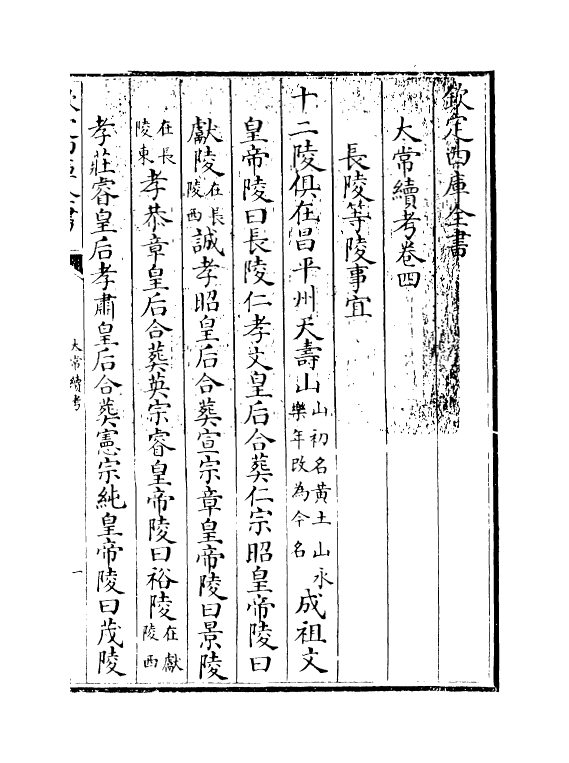 欽定四庫全書
太常續考卷四
長陵等陵事宜
十二陵俱在昌平州天壽山山初名黄土山永樂年改為今名成祖文
皇帝陵曰長陵仁孝文皇后合葬仁宗昭皇帝陵曰
獻陵在長陵西誠孝昭皇后合葬宣宗章皇帝陵曰景陵
在長陵東孝恭章皇后合葬英宗睿皇帝陵曰裕陵在獻陵西
孝莊睿皇后孝肅皇后合葬憲宗純皇帝陵曰茂陵
欽定四庫全書
太常續考
一